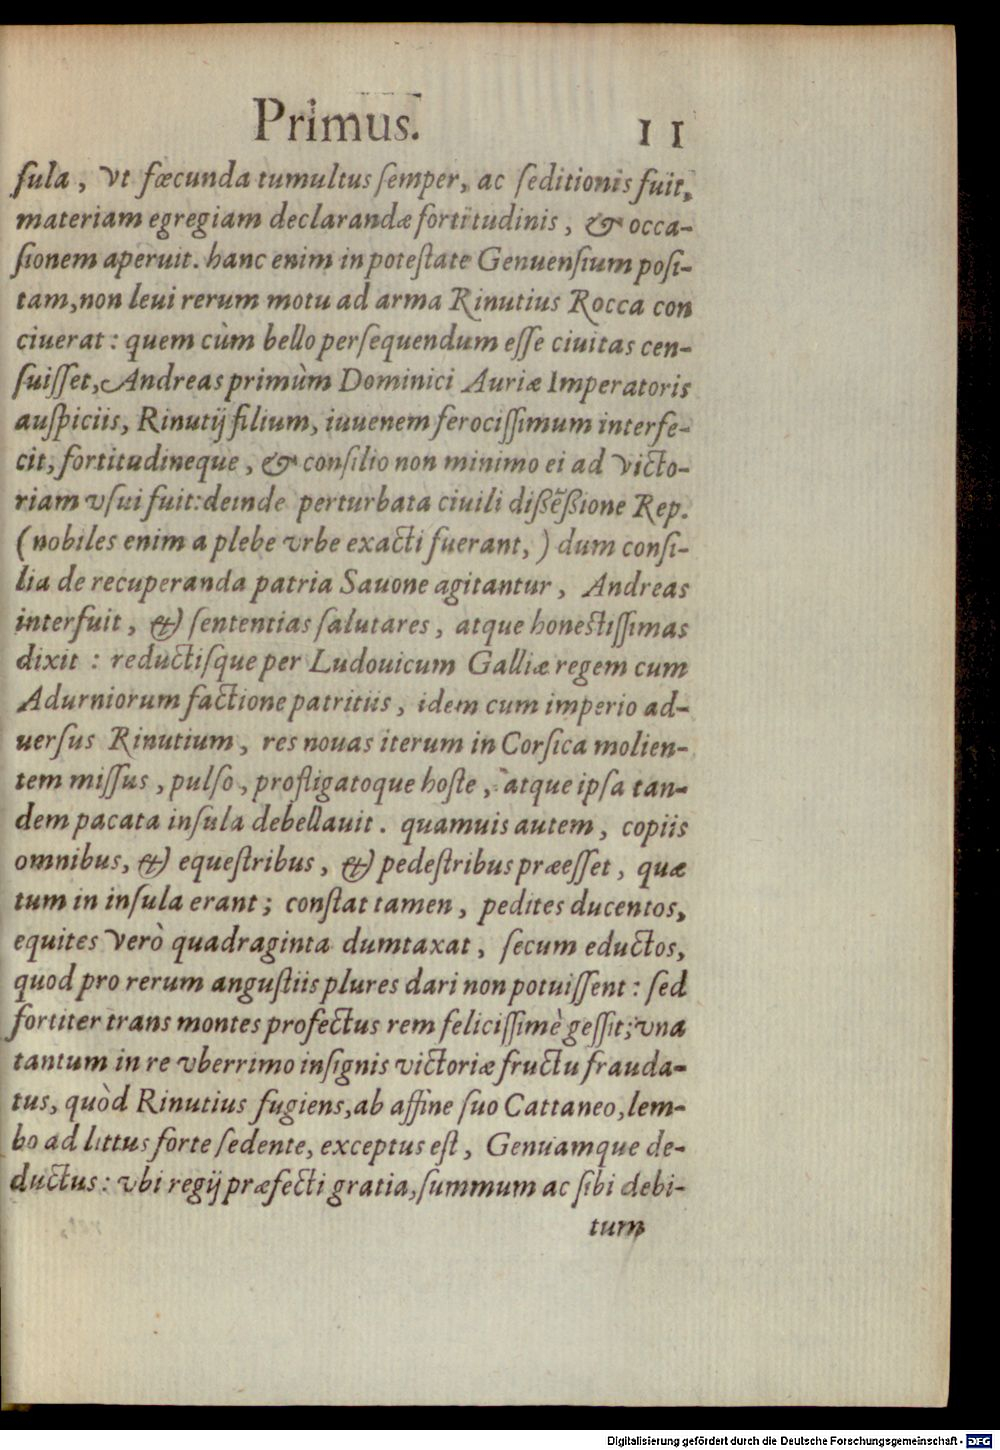 Primus. 11
ſula, vt fœcunda tumultus ſemper, ac ſeditionis fuit,
materiam egregiam declarandæ fortitudinis, & occa-
ſionem aperuit. hanc enim in poteſtate Genuenſium poſi-
tam, non leui rerum motu ad arma Rinutius Rocca con
ciuerat: quem cùm bello perſequendum eſſe ciuitas cen-
ſuiſſet, Andreas primùm Dominici Auriæ Imperatoris
auſpiciis, Rinutij filium, iuuenem ferociſſimum interfe-
cit, fortitudineque, & conſilio non minimo ei ad victo-
riam vſui fuit: deinde perturbata ciuili dißẽßione Rep.
(nobiles enim a plebe vrbe exacti fuerant,) dum conſi-
lia de recuperanda patria Sauone agitantur, Andreas
interfuit, & ſententias ſalutares, atque honeſtiſſimas
dixit: reductiſque per Ludouicum Galliæ regem cum
Adurniorum factione patritiis, idem cum imperio ad-
uerſus Rinutium, res nouas iterum in Corſica molien-
tem miſſus, pulſo, profligatoque hoſte, atque ipſa tan-
dem pacata inſula debellauit. quamuis autem, copiis
omnibus, & equeſtribus, & pedeſtribus præeſſet, quæ
tum in inſula erant; conſtat tamen, pedites ducentos,
equites verò quadraginta dumtaxat, ſecum eductos,
quod pro rerum anguſtiis plures dari non potuiſſent: ſed
fortiter trans montes profectus rem feliciſſimè geſſit; vna
tantum in re vberrimo inſignis victoriæ fructu frauda-
tus, quòd Rinutius fugiens, ab affine ſuo Cattaneo, lem-
bo ad littus forte ſedente, exceptus eſt, Genuamque de-
ductus: vbi regij præfecti gratia, ſummum ac ſibi debi-
tum
Digitalisierung gefördert durch die Deutsche Forschungsgemeinschaft - DFG